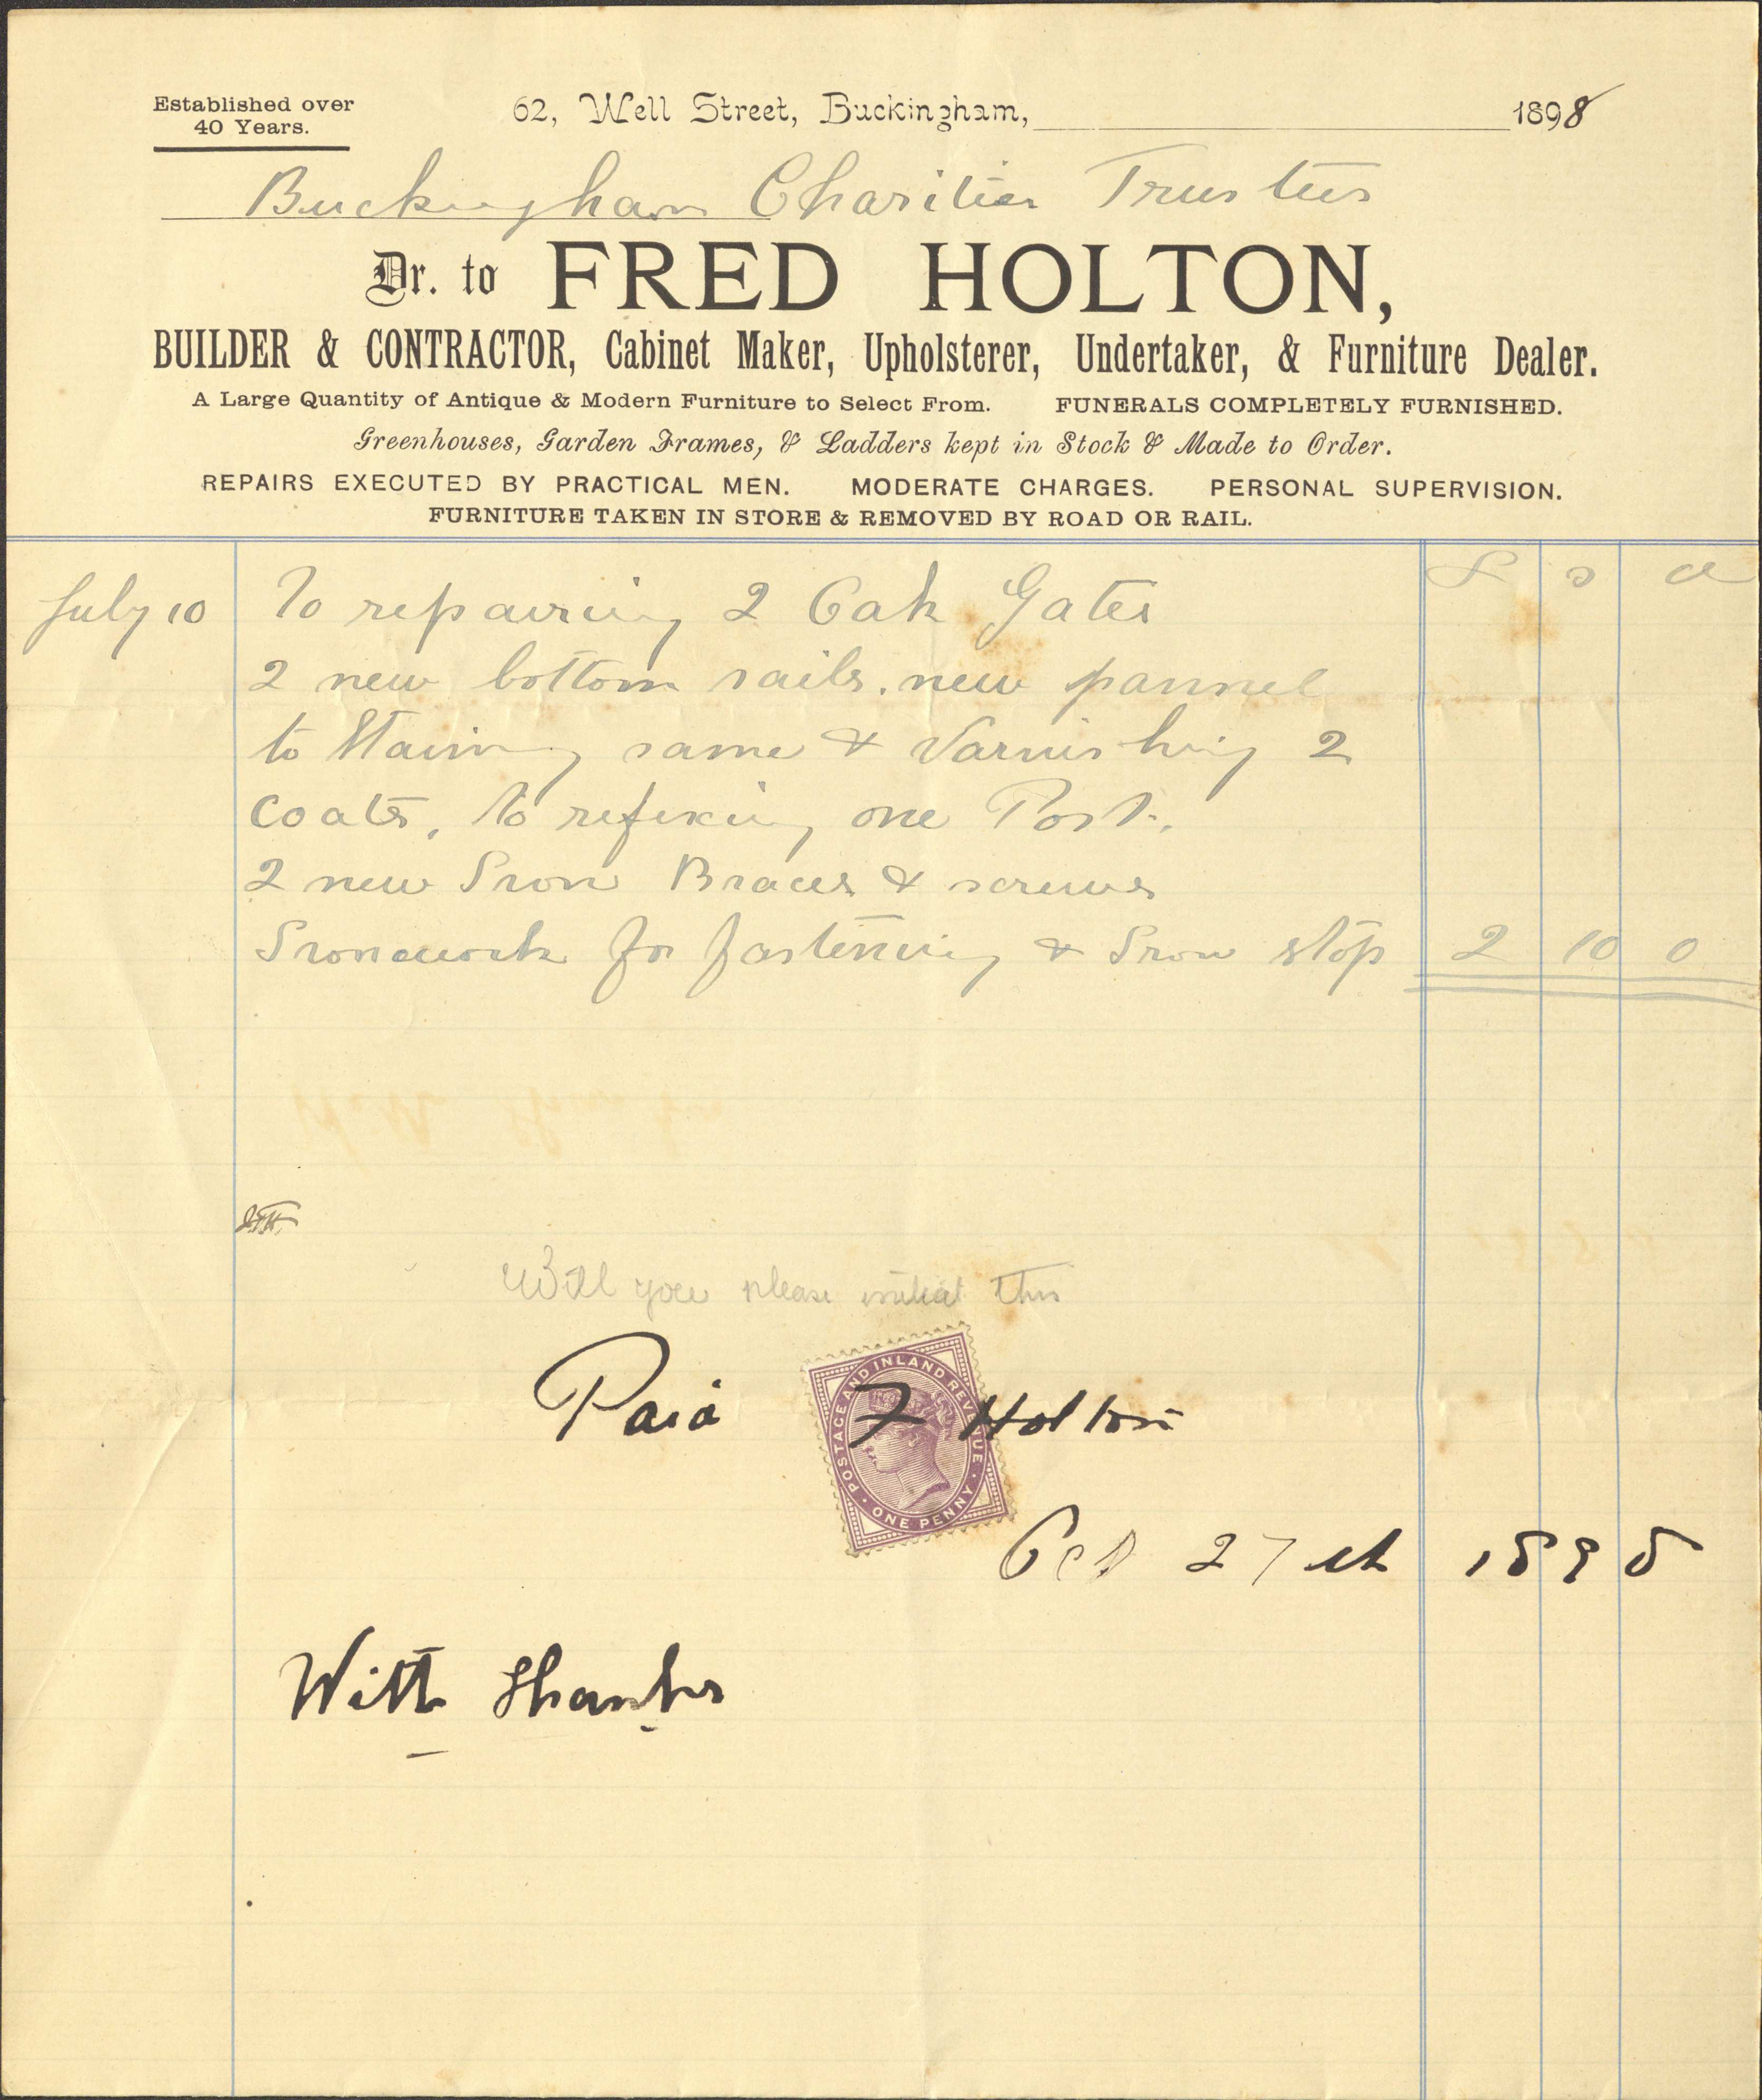 Established over
40 Years.
62, Well Street, Buckingham, 1898
Buckingham Charities Trustees
Dr. to FRED HOLTON,
BUILDER & CONTRACTOR, Cabinet Maker, Upholsterer, Undertaker, & Furniture Dealer.
A Large Quantity of Antique & Modern Furniture to Select From. FUNERALS COMPLETELY FURNISHED.
Greenhouses, Garden Frames, & Ladders kept in Stock & Made to Order.
REPAIRS EXECUTED BY PRACTICAL MEN. MODERATE CHARGES. PERSONAL SUPERVISION.
FURNITURE TAKEN IN STORE & REMOVED BY ROAD OR RAIL.
£ s d
July 10 To repairing 2 Oak Gates
2 new bottom rails. new pannel
to Staining same & Varnishing 2
coats. To refixing one Post.
2 new Iron Braces & screws
Ironwork for fastening & Iron stop 2 10 0
Will you please initial this
Paid F Holton
POSTAGE AND INLAND REVENUE
ONE PENNY
Oct 27th 1898
With thanks